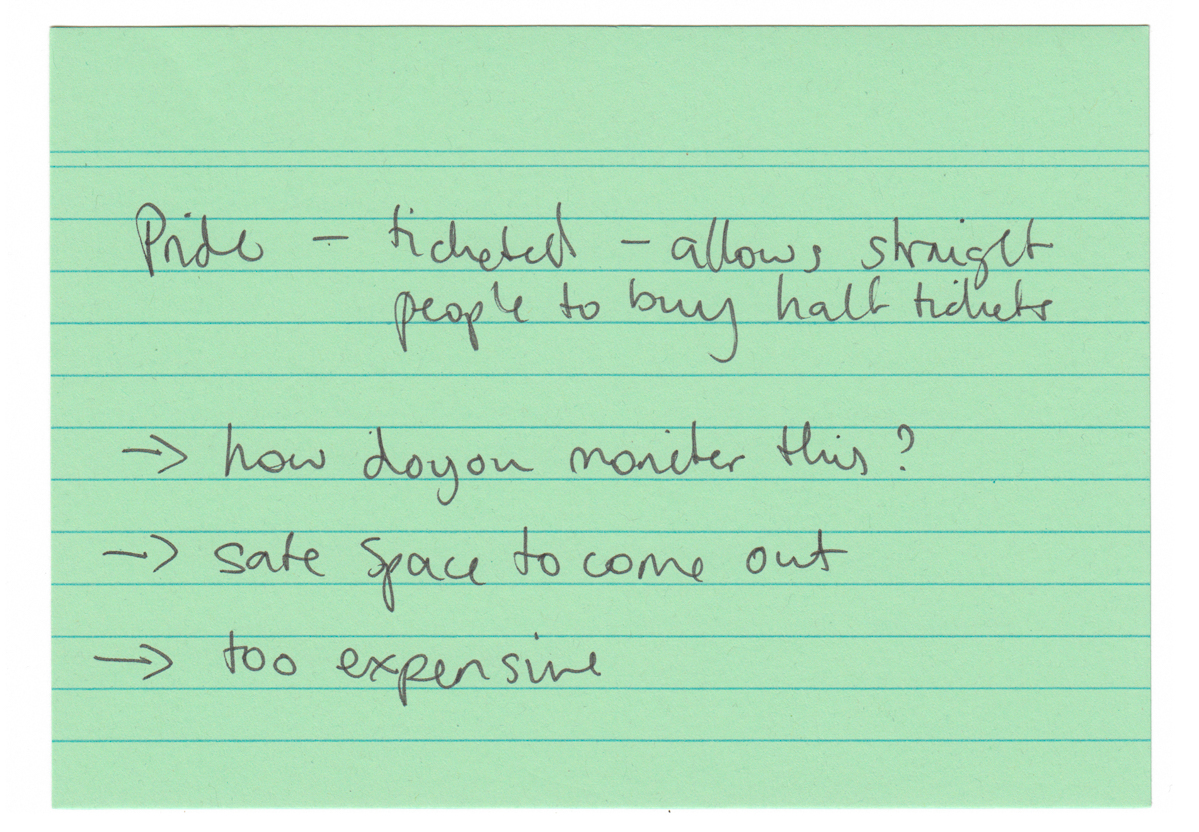 Pride – ticketed – allows straight
people to buy half tickets
→ how do you moniter this?
→ safe space to come out
→ too expensive